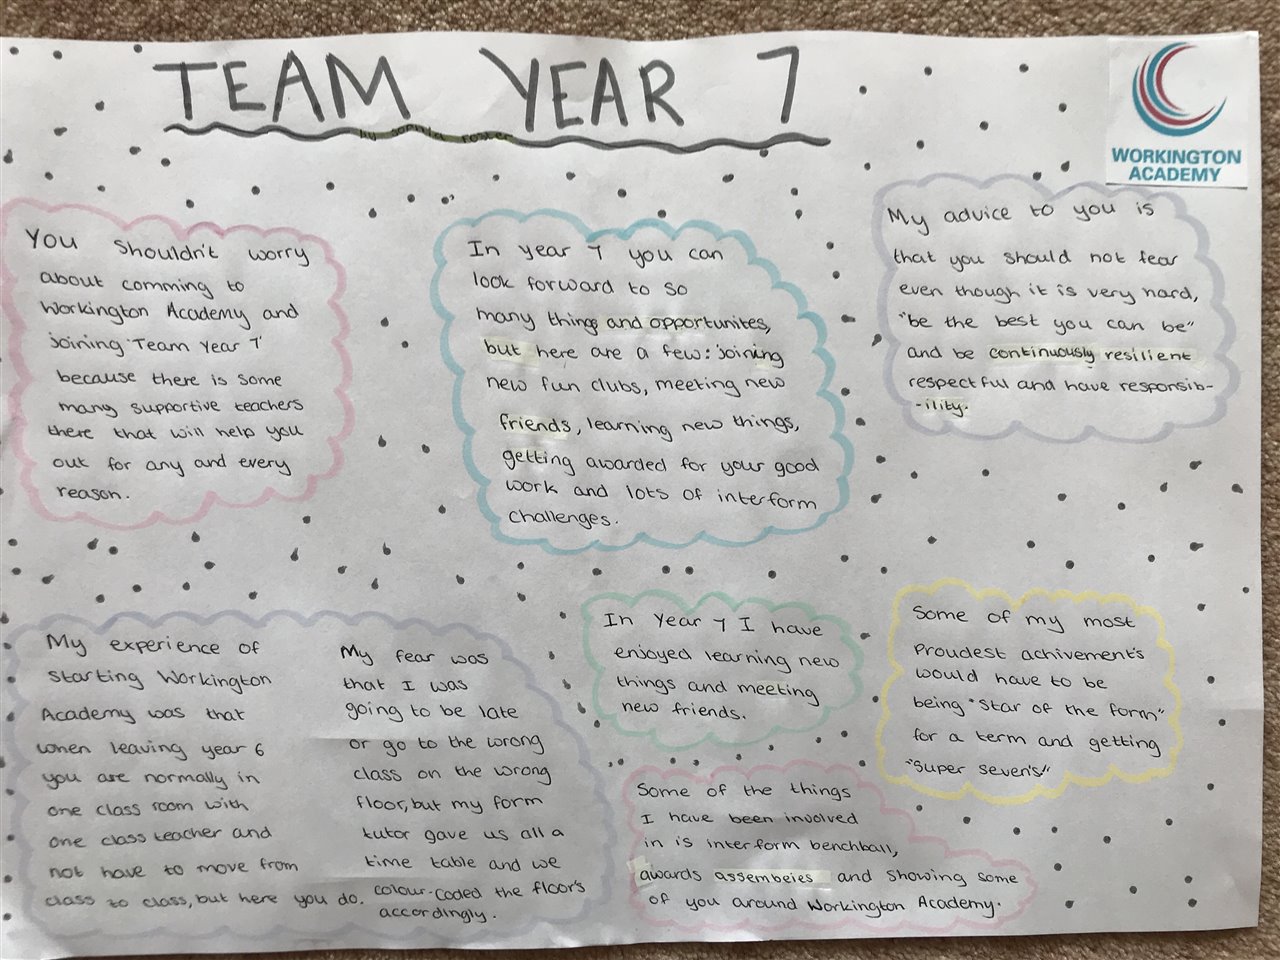 TEAM YEAR 7
WORKINGTON
ACADEMY
You shouldn't worry
about comming to
Workington Academy and
joining 'Team Year 7'
because there is some
many supportive teachers
there that will help you
out for any and every
reason.
In year 7 you can
look forward to so
many things and opportunites,
but here are a few: joining
new fun clubs, meeting new
friends, learning new things,
getting awarded for your good
work and lots of interform
challenges.
My advice to you is
that you should not fear
even though it is very hard,
"be the best you can be"
and be continuously resilient
respectful and have responsib-
-ility.
My experience of
starting Workington
Academy was that
when leaving year 6
you are normally in
one class room with
one class teacher and
not have to move from
class to class, but here you do.
My fear was
that I was
going to be late
or go to the wrong
class on the wrong
floor, but my form
tutor gave us all a
time table and we
colour-coded the floor's
accordingly.
In Year 7 I have
enjoyed learning new
things and meeting
new friends.
Some of my most
Proudest achivement's
would have to be
being "Star of the form"
for a term and getting
"Super seven's"
Some of the things
I have been involved
in is interform benchball,
awards assembeies and showing some
of you around Workington Academy.